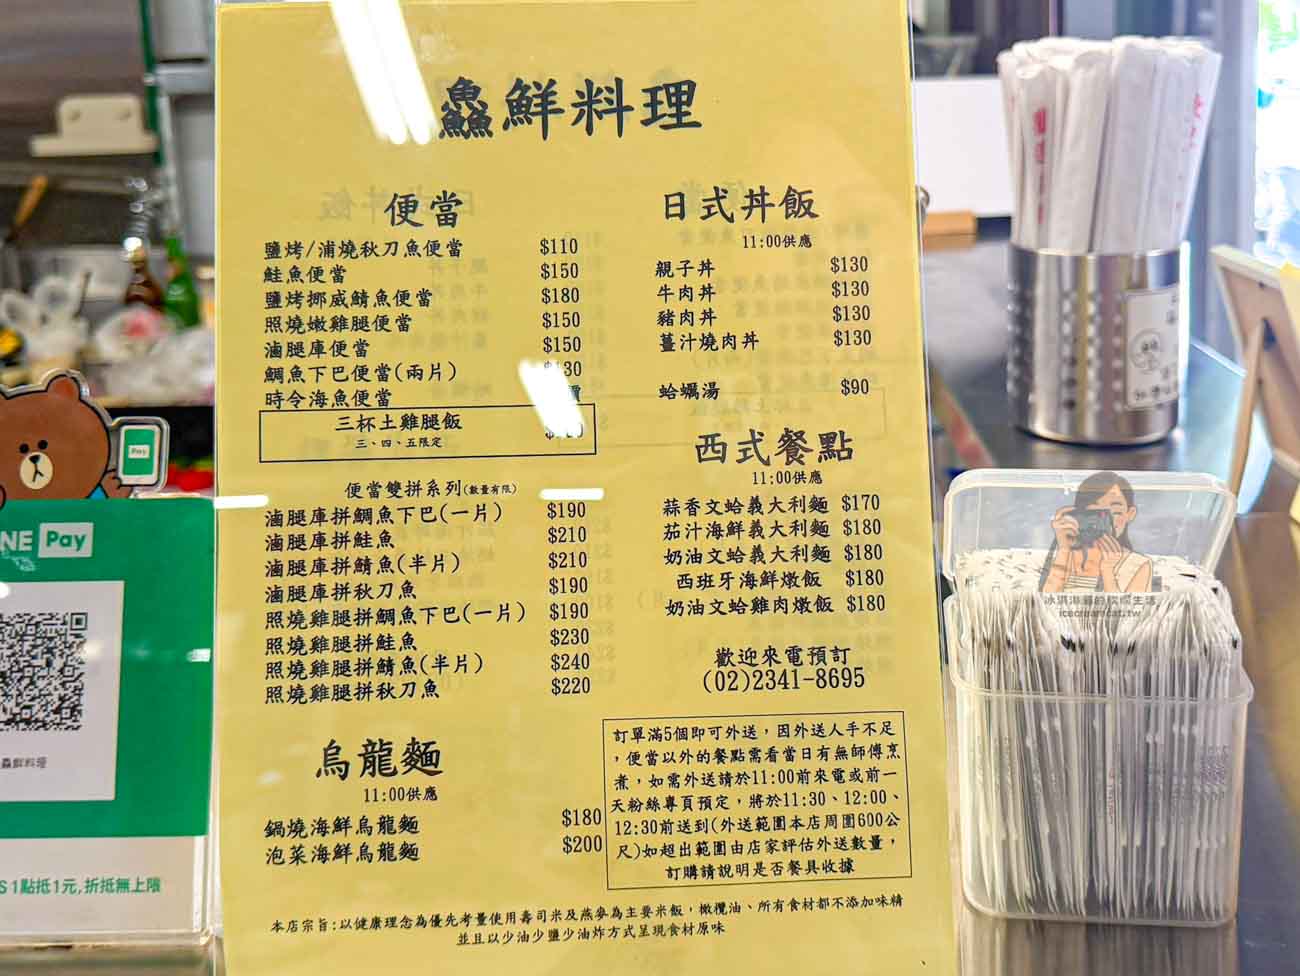 鱻鮮料理
便當
鹽烤/浦燒秋刀魚便當 $110
鮭魚便當 $150
鹽烤挪威鯖魚便當 $180
照燒嫩雞腿便當 $150
滷腿庫便當 $150
鯛魚下巴便當(兩片) 30
時令海魚便當
三杯土雞腿飯
三、四、五限定
便當雙拼系列(數量有限)
滷腿庫拼鯛魚下巴(一片) $190
滷腿庫拼鮭魚 $210
滷腿庫拼鯖魚(半片) $210
滷腿庫拼秋刀魚 $190
照燒雞腿拼鯛魚下巴(一片) $190
照燒雞腿拼鮭魚 $230
照燒雞腿拼鯖魚(半片) $240
照燒雞腿拼秋刀魚 $220
烏龍麵
11:00供應
鍋燒海鮮烏龍麵 $180
泡菜海鮮烏龍麵 $200
日式丼飯
11:00供應
親子丼 $130
牛肉丼 $130
豬肉丼 $130
薑汁燒肉丼 $130
蛤蠣湯 $90
西式餐點
11:00供應
蒜香文蛤義大利麵 $170
茄汁海鮮義大利麵 $180
奶油文蛤義大利麵 $180
西班牙海鮮燉飯 $180
奶油文蛤雞肉燉飯 $180
歡迎來電預訂
(02)2341-8695
訂單滿5個即可外送，因外送人手不足
，便當以外的餐點需看當日有無師傅烹
煮，如需外送請於11:00前來電或前一
天粉絲專頁預定，將於11:30、12:00、
12:30前送到(外送範圍本店周圍600公
尺)如超出範圍由店家評估外送數量，
訂購請說明是否餐具收據
本店宗旨:以健康理念為優先考量使用壽司米及燕麥為主要米飯，橄欖油、所有食材都不添加味精
並且以少油少鹽少油炸方式呈現食材原味
NE Pay
Pay
鱻鮮料理
S 1點抵1元,折抵無上限
冰淇淋貓的吃喝生活
icecreamcat.tw